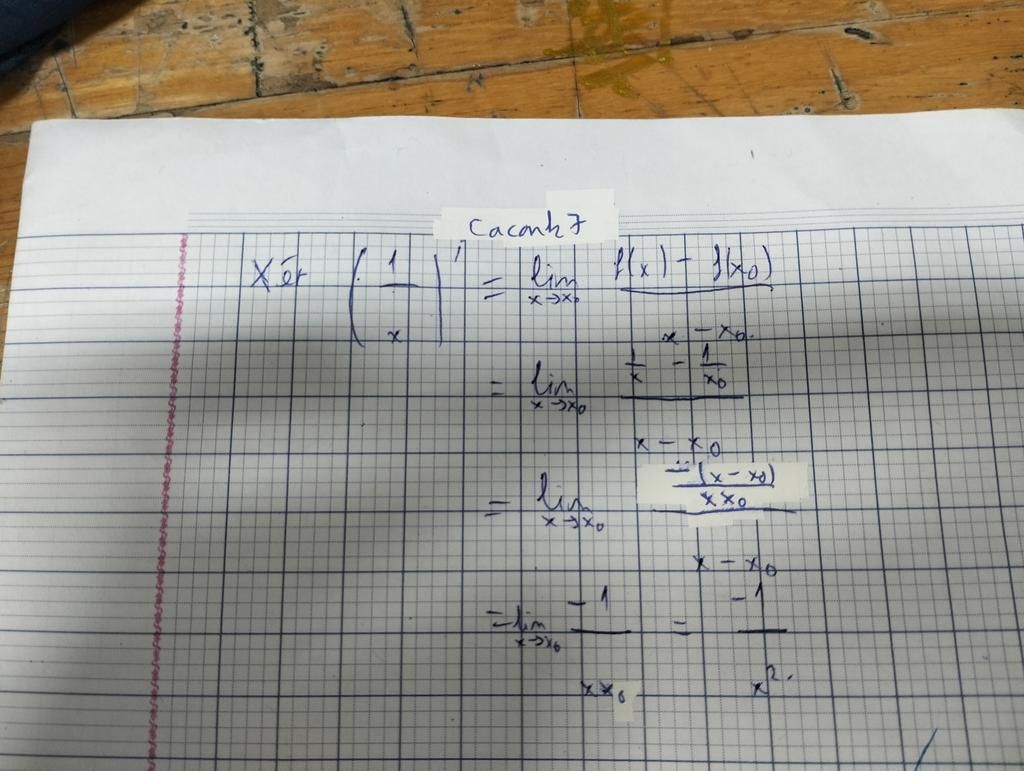 cacanh7
Xét ( 1/x )' = lim x→x₀ (f(x) - f(x₀))/(x - x₀).
= lim x→x₀ (1/x - 1/x₀)/(x - x₀)
= lim x→x₀ (-(x - x₀)/(x x₀))/(x - x₀)
= lim x→x₀ -1/(x x₀) = -1/x².